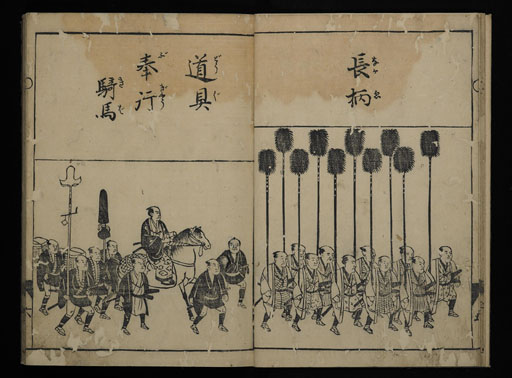 長柄
道具
奉行
騎馬